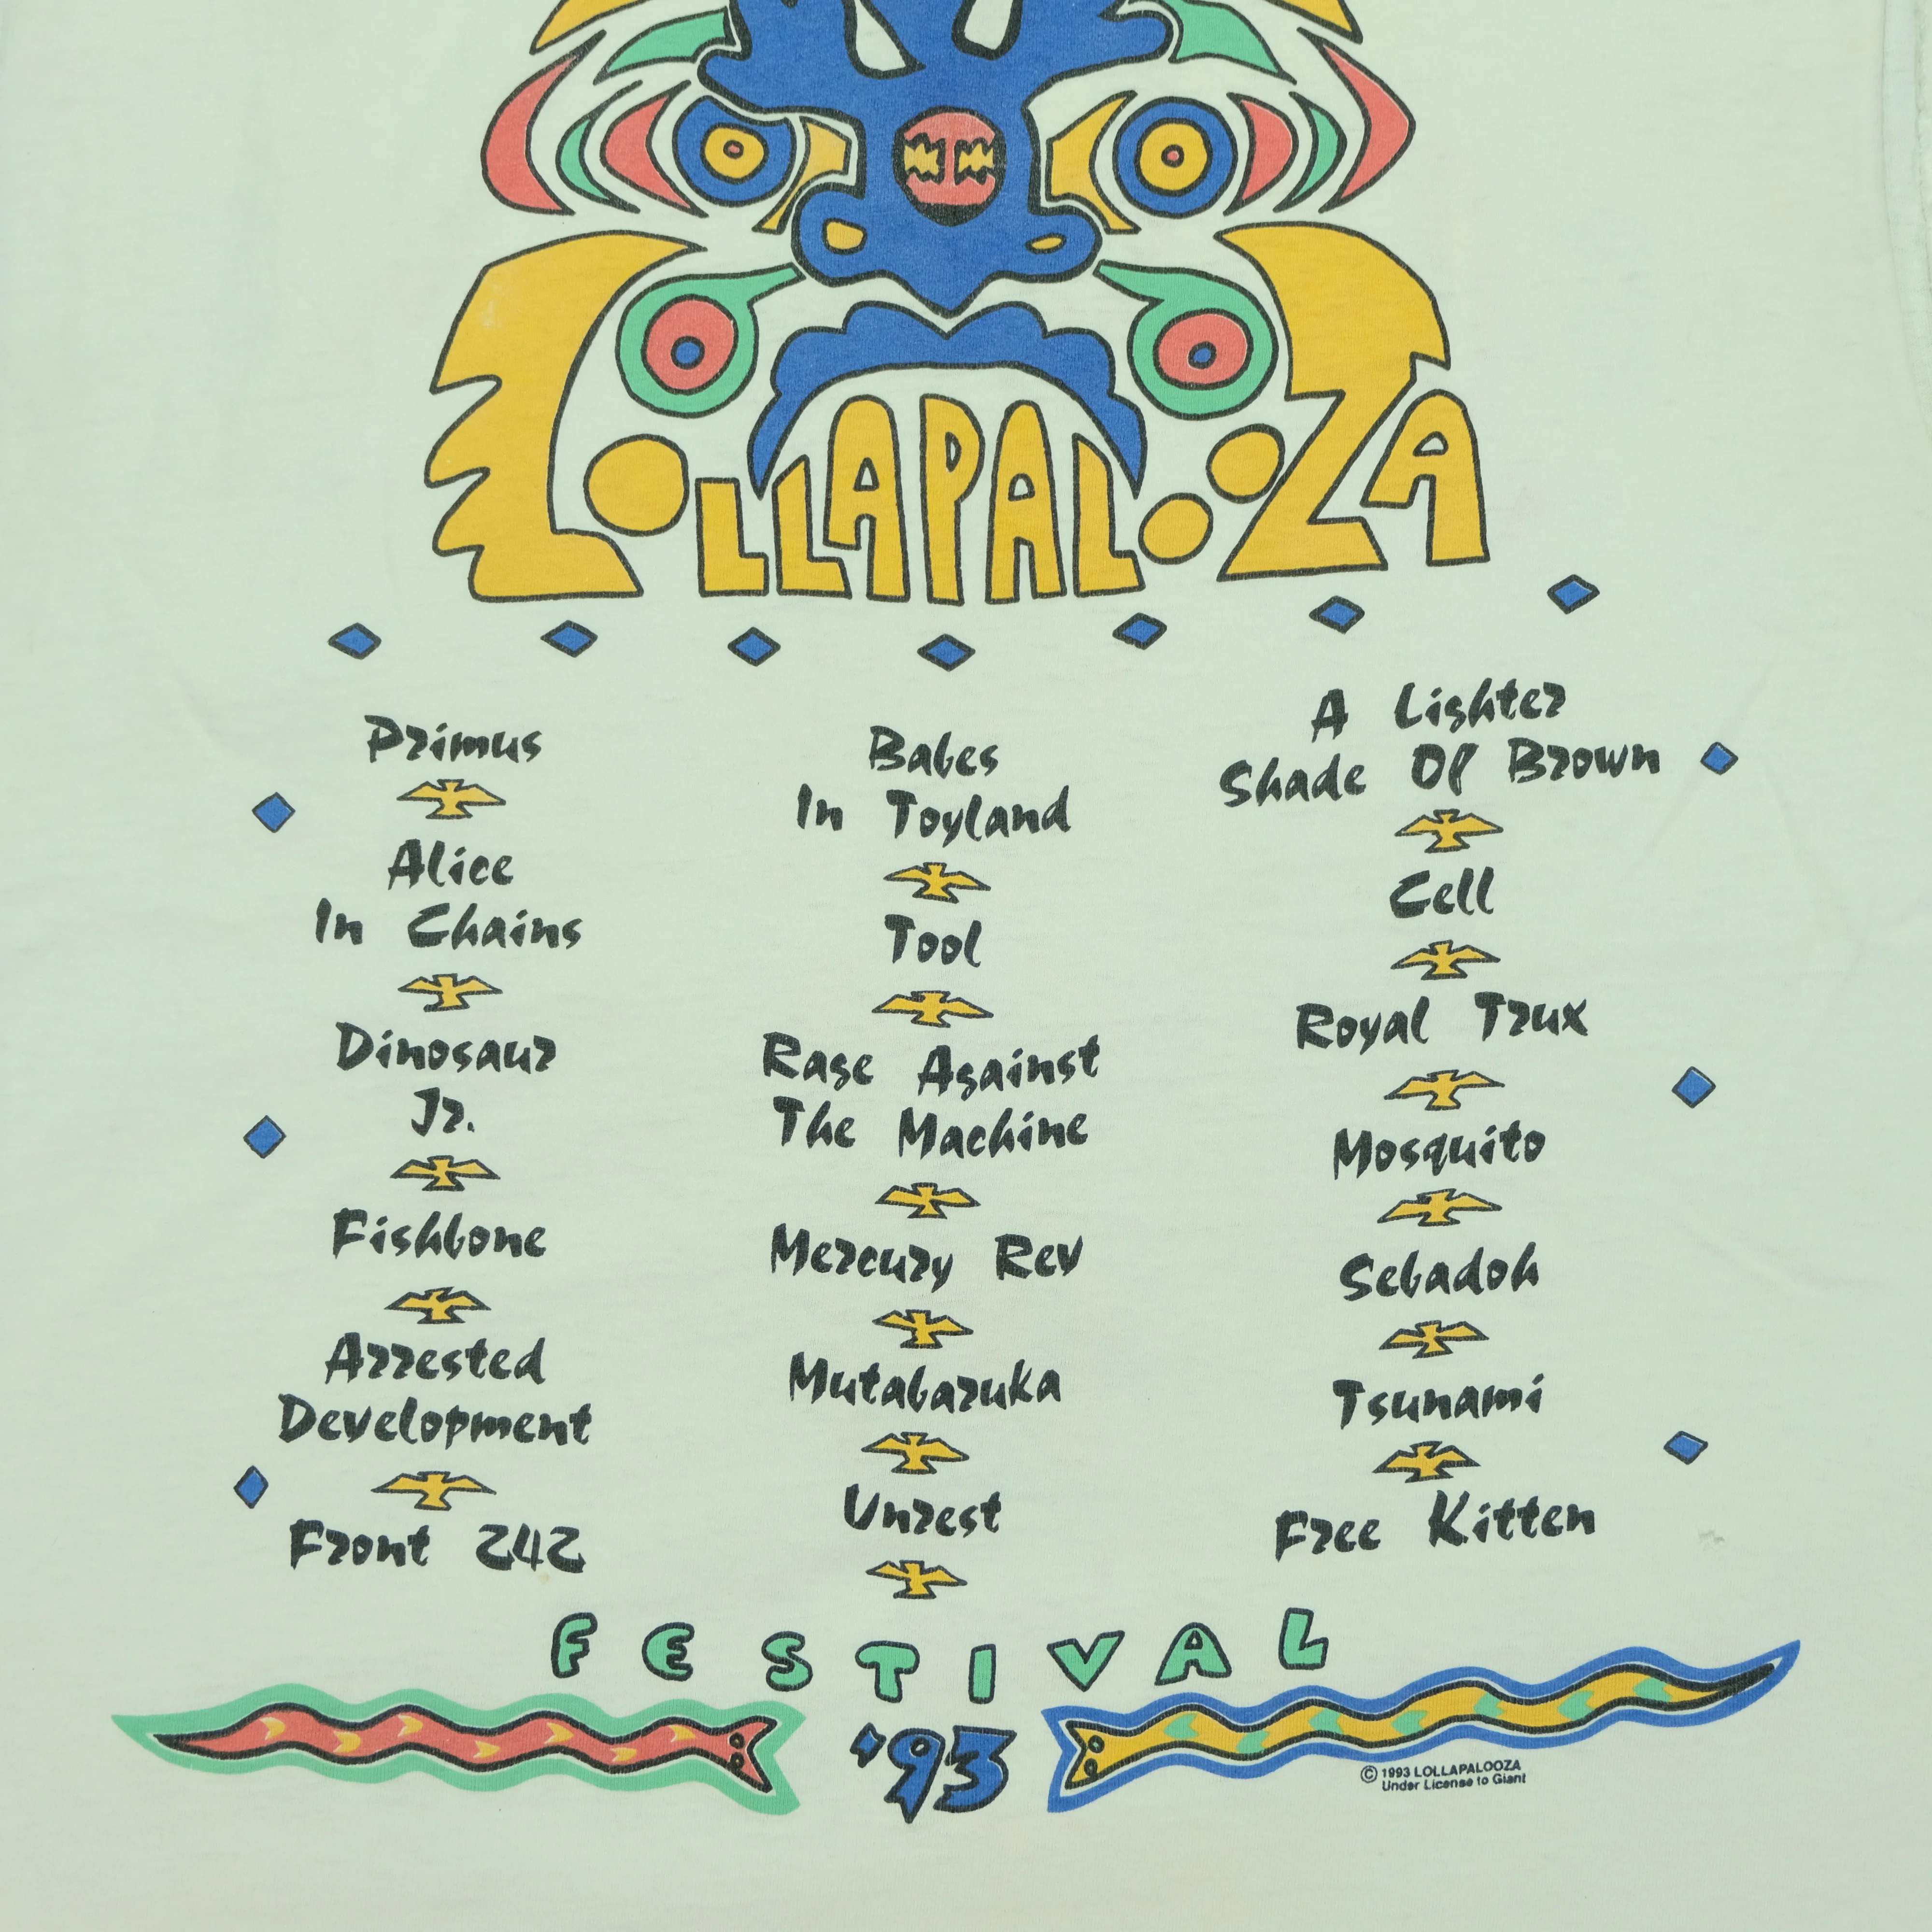 LOLLAPALOOZA
Primus
Alice
In Chains
Dinosaur
Jr.
Fishbone
Arrested
Development
Front 242
Babes
In Toyland
Tool
Rage Against
The Machine
Mercury Rev
Mutabaruka
Unrest
A Lighter
Shade Of Brown
Cell
Royal Trux
Mosquito
Sebadoh
Tsunami
Free Kitten
FESTIVAL
'93
© 1993 LOLLAPALOOZA
Under License to Giant